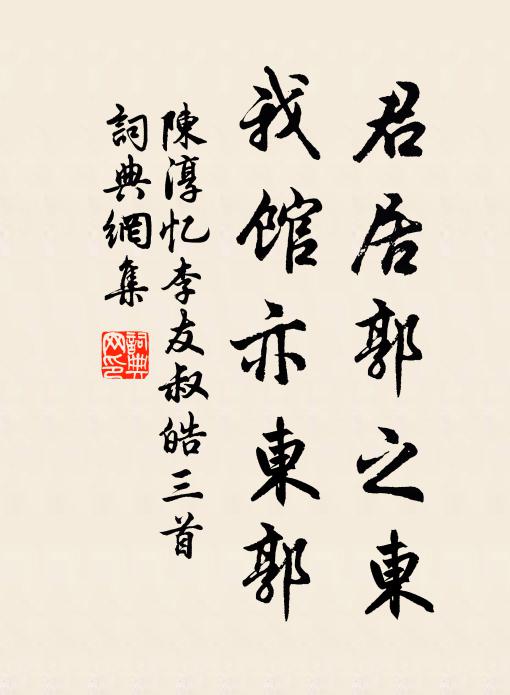 君居郭之東
我館亦東郭
陳淳忆李友叔皓三首
詞典網集
詞典网印